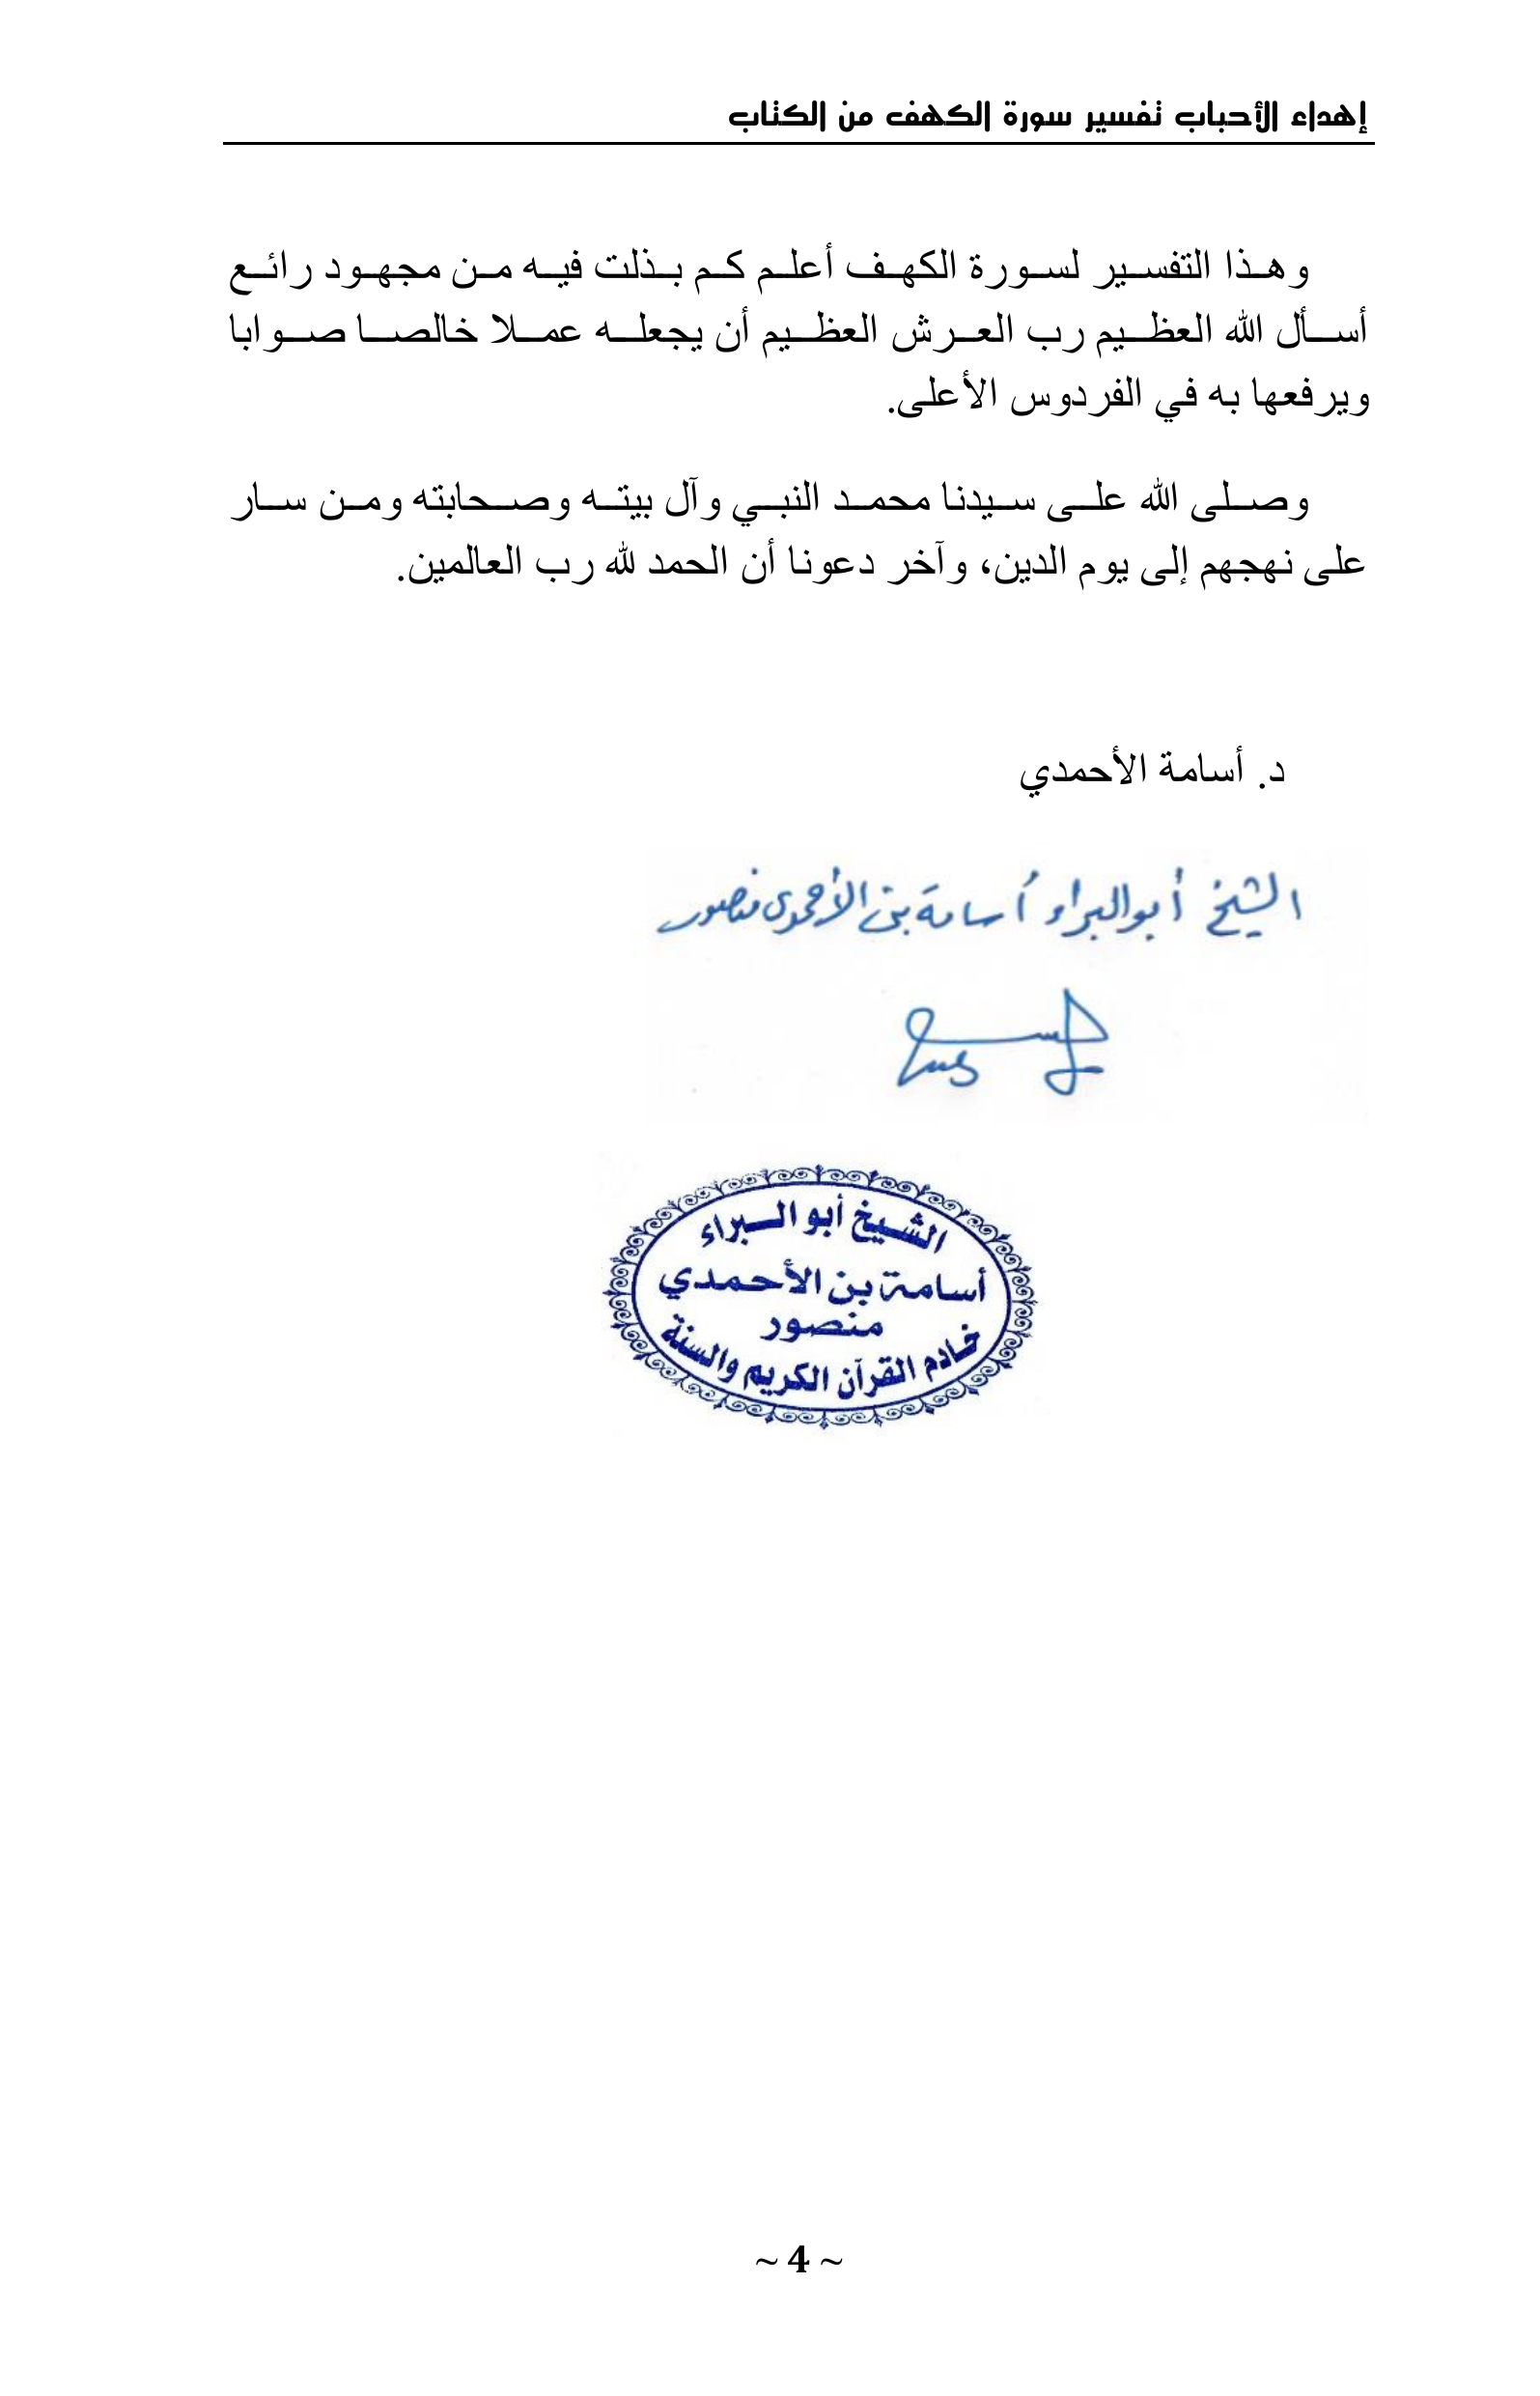 إهداء الأحباب تفسير سورة الكهف من الكتاب
وهذا التفسير لسورة الكهف أعلم كم بذلت فيه من مجهود رائع
أسأل الله العظيم رب العرش العظيم أن يجعله عملا خالصا صوابا
ويرفعها به في الفردوس الأعلى.
وصلى الله على سيدنا محمد النبي وآل بيته وصحابته ومن سار
على نهجهم إلى يوم الدين، وآخر دعونا أن الحمد لله رب العالمين.
د. أسامة الأحمدي
الشيخ أبو البراء أسامة بن الأحمدى منصور
الشيخ أبو البراء
أسامة بن الأحمدي
منصور
خادم القرآن الكريم والسنة
~ 4 ~